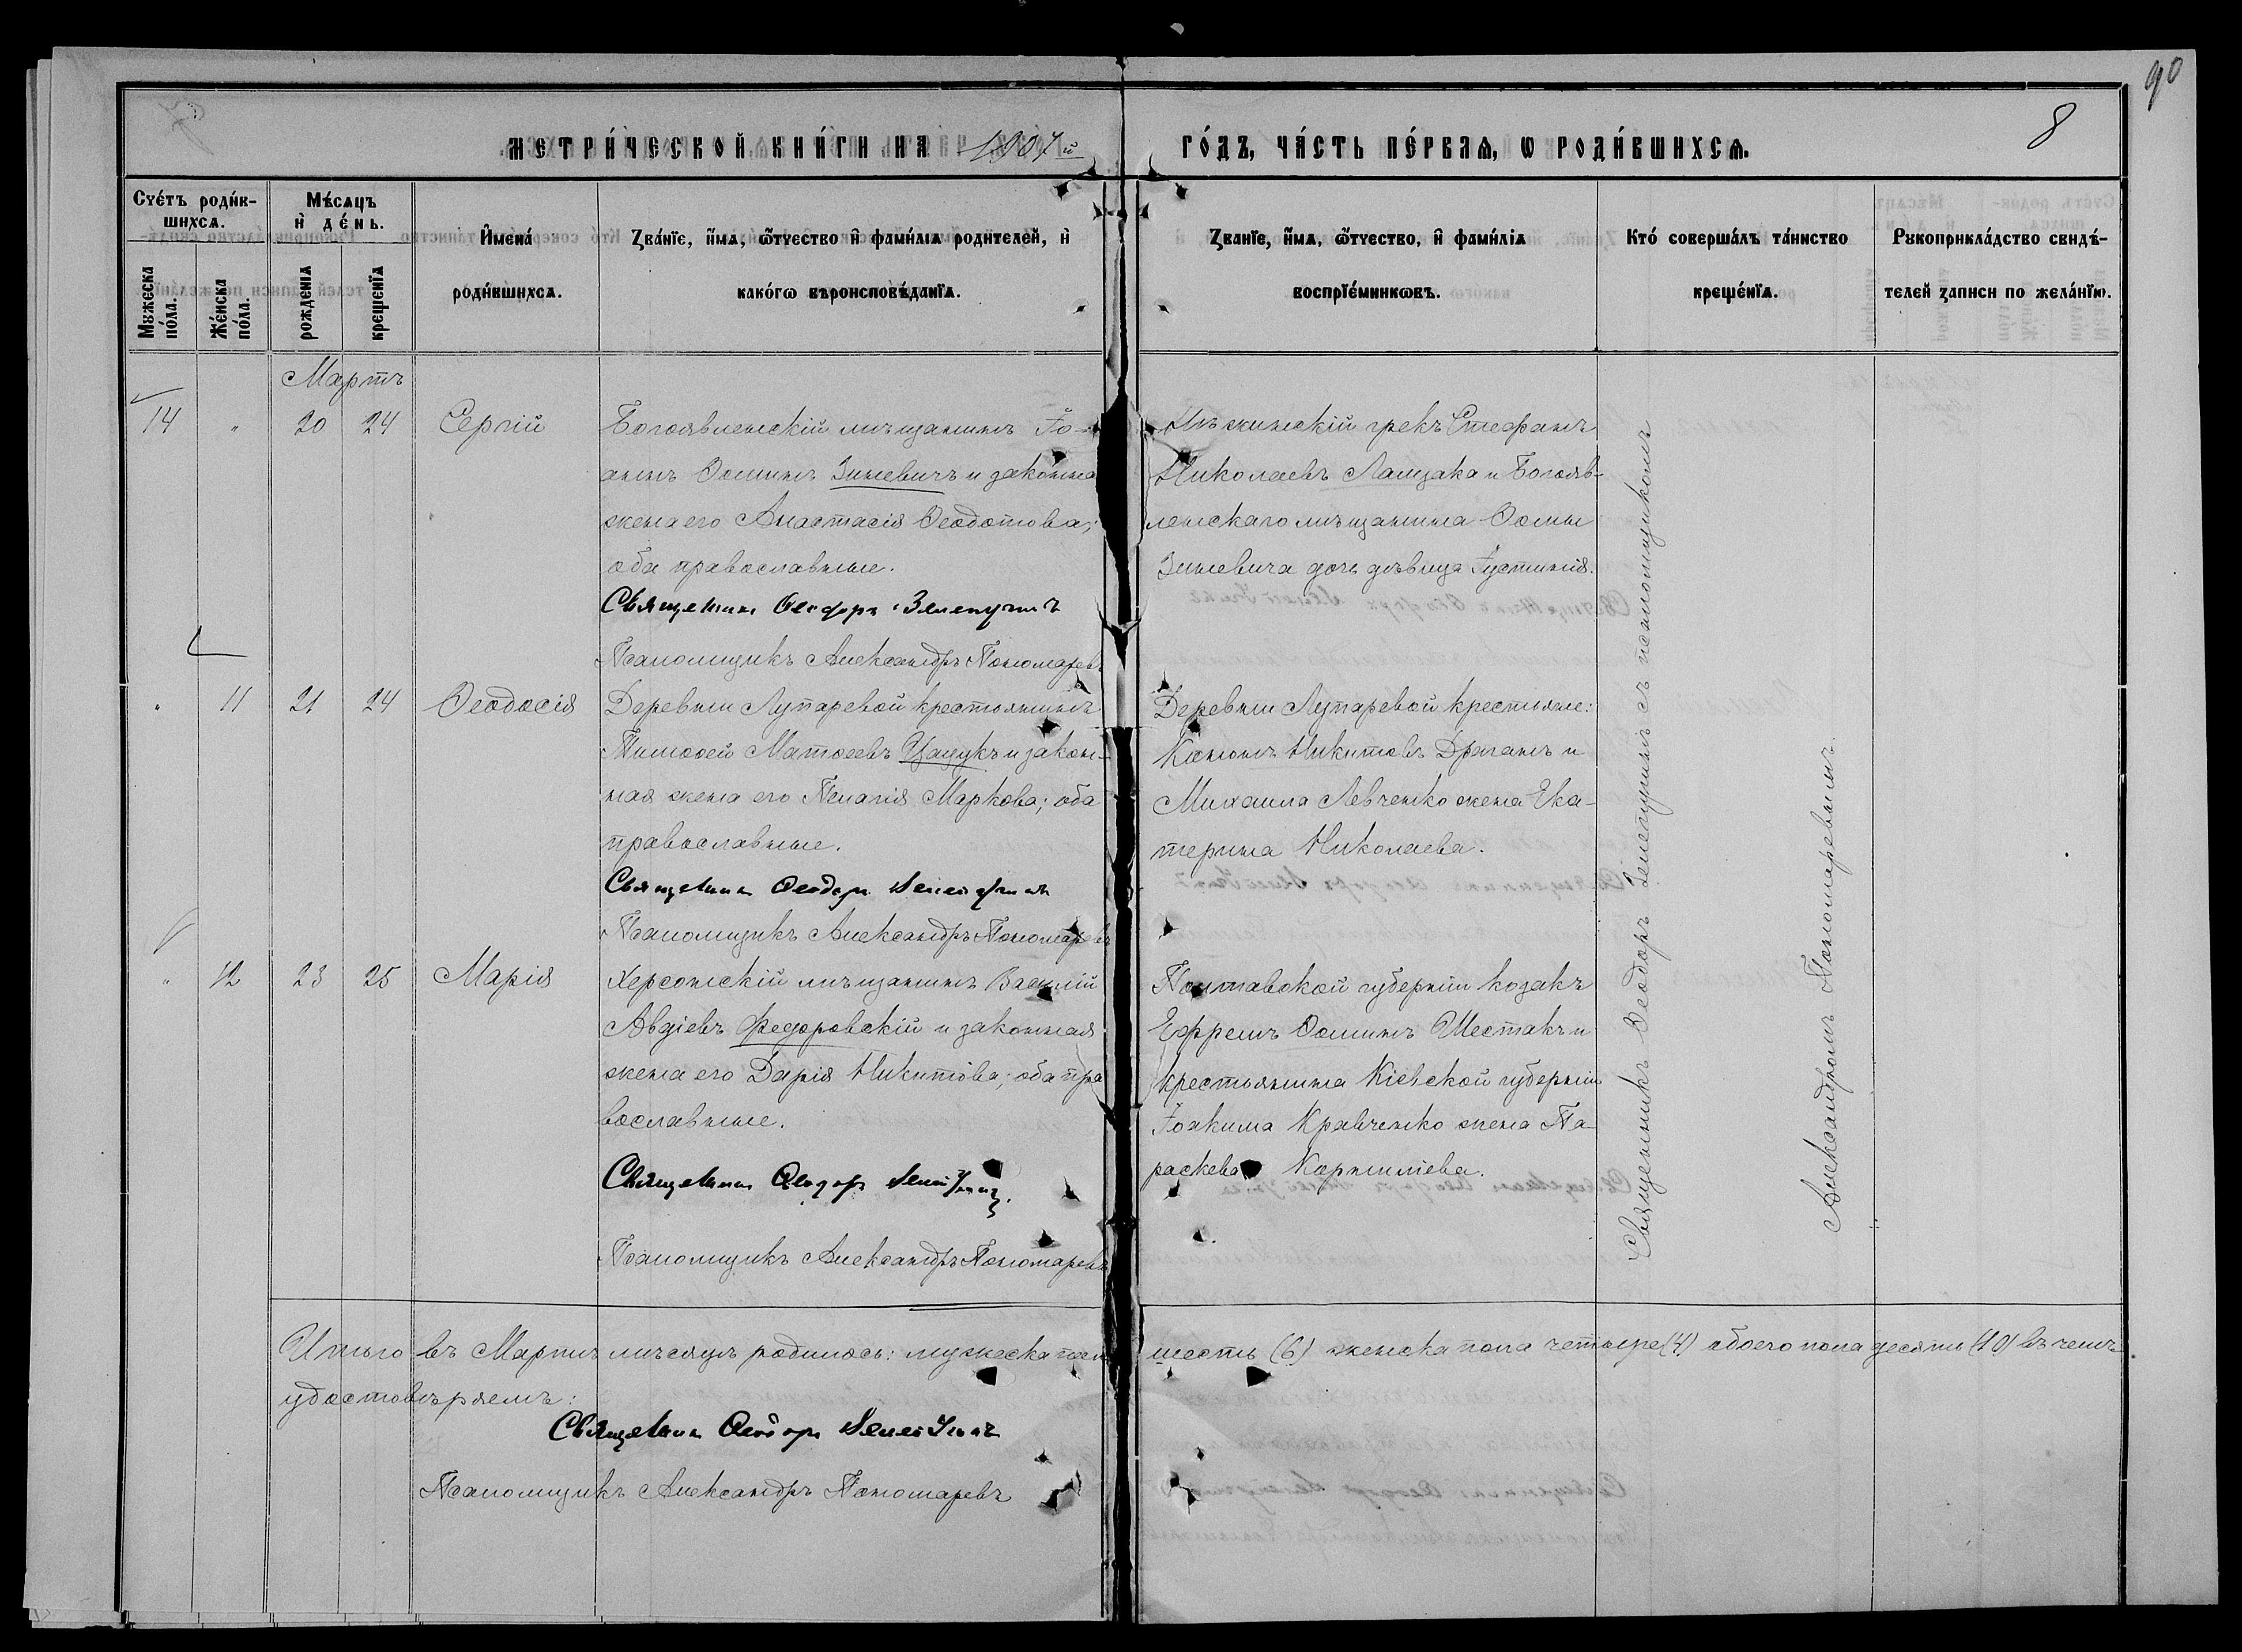 90
8
МЕТРИ́ЧЕСКОЙ КНИ́ГИ НА 1907й ГО́ДЪ, ЧА́СТЬ ПЕ́РВАѦ, Ѡ РОДИ́ВШИХСѦ.
Счéтъ роди́в-
шихсѧ.
Мꙋжеска по́ла.
Же́нска по́ла.
Мѣ́сѧцъ
и҆ де́нь.
рожденїѧ
крещенїѧ
И҆мена́
роди́вшихсѧ.
Зва́нїе, и҆́мѧ, ѻ҆́тчество и҆ фами́лїѧ родителей, и҆
како́гѡ вѣроисповѣ́данїѧ.
Зва́нїе, и҆́мѧ, ѻ҆́тчество, и҆ фами́лїѧ
воспрїе́мникѡвъ.
Кто́ соверша́лъ та́инство
креще́нїѧ.
Рꙋкоприкла́дство свидѣ́-
телей записи по жела́нїю.
Мартъ
14 " 20 24 Сергій
Богоявленскій мѣщанинъ Іо-
аннъ Ѳоминъ Зиневичъ и законна
жена его Анастасія Ѳеодотова;
оба православные.
Священник Ѳеодоръ Зелепугинъ
Псаломщикъ Александръ Пономаревъ
Нѣжинскій грекъ Стефанъ
Николаевъ Ламзака и Богояв-
ленскаго мѣщанина Ѳомы
Зиневича дочь дѣвица Іустинія.
" 11 21 24 Ѳеодосія
Деревни Лупаревой крестьянинъ
Тимоѳей Матѳеевъ Цацукъ и закон-
ная жена его Пелагія Маркова; оба
православные.
Священник Ѳеодоръ Зелепугинъ
Псаломщикъ Александръ Пономаревъ
Деревни Лупаревой крестьяне:
Кононъ Никитовъ Драганъ и
Михаила Левченко жена Ека-
терина Николаева.
" 12 23 25 Марія
Херсонскій мѣщанинъ Василій
Авдіевъ Федоровскій и законная
жена его Дарія Никитова; оба пра
вославные.
Священник Ѳеодоръ Зелепугинъ.
Псаломщикъ Александръ Пономаревъ
Полтавской губерніи козакъ
Ефремъ Ѳоминъ Шестакъ и
крестьянина Кіевской губерніи
Іоакима Кравченко жена Па-
раскева Корниліева.
Священникъ Ѳеодоръ Зелепугинъ съ псаломщикомъ
Александромъ Пономаревымъ.
Итого въ Мартѣ мѣсяцѣ родилось: мужеска пола шесть (6) женска пола четыре (4) обоего пола десять (10) въ чемъ
удостовѣряемъ:
Священник Ѳеодоръ Зелепугинъ
Псаломщикъ Александръ Пономаревъ